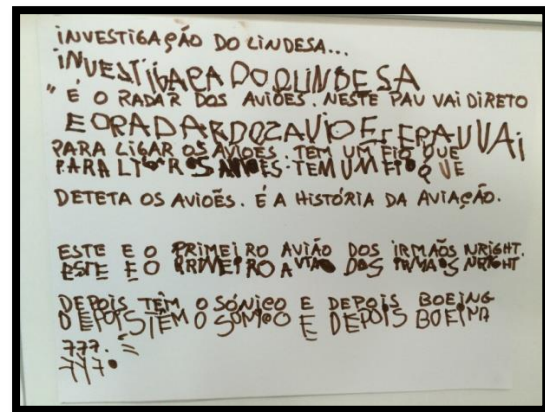 INVESTIGAÇÃO DO LINDESA...
INVESTIGAPA DO QUINDESA
"É O RADAR DOS AVIÕES. NESTE PAU VAI DIRETO
E O RADAR DOZ AVIO E EPAU VAI
PARA LIGAR OS AVIOES. TEM UM FIO QUE
PARA LIGOR OS TEM UM FIO Q VE
DETETA OS AVIOËS. É A HISTÓRIA DA AVIAÇÃO.
ESTE E O PRIMEIRO AVIÃO DOS IRMÃOS NRIGHT.
ESTE E O PRIMEIRO AVIAO DOS IRMAOS NRIGHT
DEPOIS TÊM O SÓNICO E DEPOIS BOEING
DEPOIS TEM O SONICO E DEPOIS BOEINA
777. =
777.